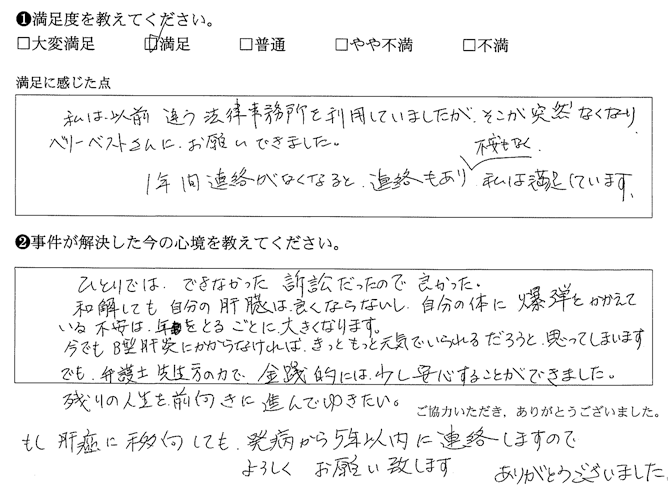 ❶満足度を教えてください。
□大変満足 □満足 □普通 □やや不満 □不満
満足に感じた点
私は、以前 違う 法律事務所を利用していましたが、そこが突然なくなり
ベリーベストさんに、お願いできました。
不安もなく、
1年間連絡がなくなると、連絡もあり 私は満足しています。
❷事件が解決した今の心境を教えてください。
ひとりでは、できなかった 訴訟だったので 良かった。
和解しても 自分の肝臓は、良くならないし、自分の体に 爆弾をかかえて
いる不安は、年をとるごとに大きくなります。
今でもB型肝炎にかからなければ、きっともっと元気でいられるだろうと、思ってしまいます
でも、弁護士先生方の力で、金銭的には、少し安心することができました。
残りの人生を前向きに進んでゆきたい。
ご協力いただき、ありがとうございました。
もし肝癌に移向しても、発病から5年以内に連絡しますので
よろしく お願い致します
ありがとうございました。